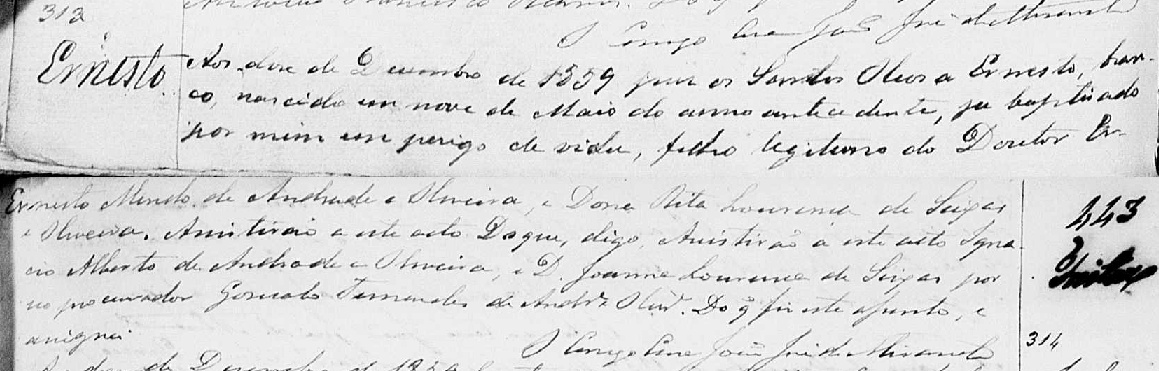 313
O Conego Cura João José de Miranda
Ernesto
Aos doze de Dezembro de 1859 puz os Santos Oleos a Ernesto, bran-
co, nascido em nove de Maio do anno antecedente, ja baptisado
por mim em perigo de vida, filho legitimo do Doutor Er-
Ernesto Mendo de Andrade e Oliveira, e Dona Rita Lourença de Seixas
e Oliveira. Assistirão a este acto Do que, digo, Assistirão a este acto Igna-
cio Alberto de Andrade e Oliveira, e D. Joanna Lourença de Seixas por
procurador Gonçalo de Andrᵉ Olivʳ. Do q̃ fiz este assento, e
assignei.
O Conego Cura João José de Miranda
443
314
de Dezembro de